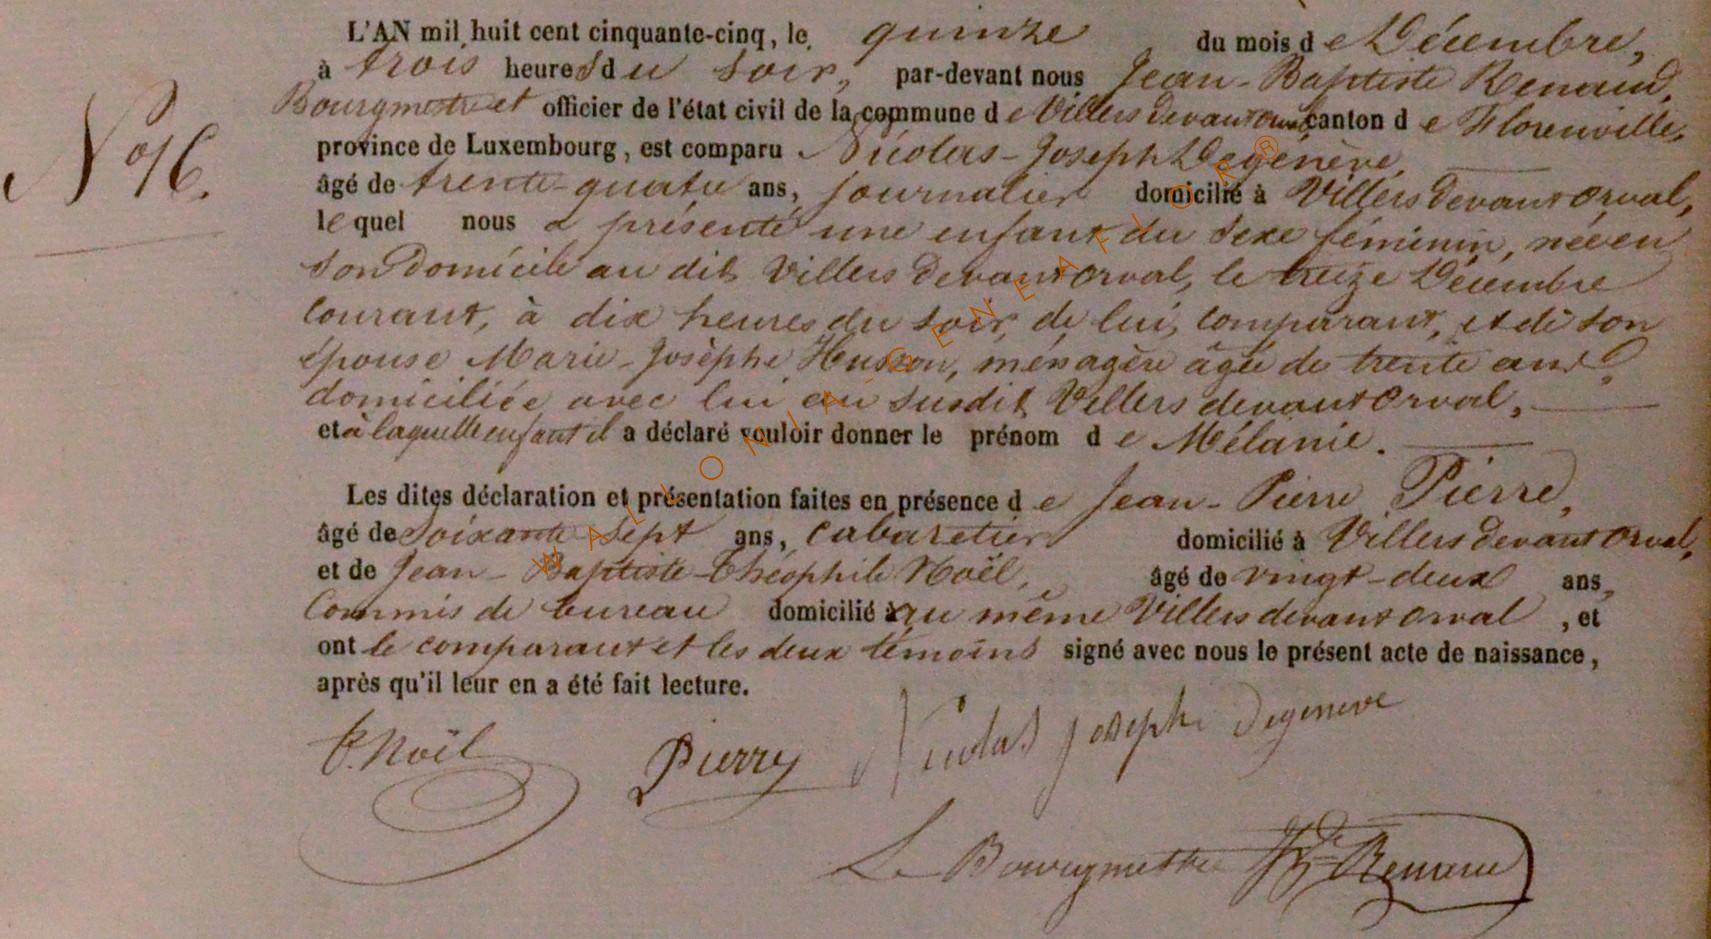 L'AN mil huit cent cinquante-cinq, le quinze du mois de Décembre,
à trois heures du soir, par-devant nous Jean-Baptiste Renaud,
Bourgmestre et officier de l'état civil de la commune de Villers devant Orval canton de Florenville,
province de Luxembourg, est comparu Nicolas-Joseph Degénève,
N° 16.
âgé de trente-quatre ans, journalier domicilié à Villers devant Orval,
lequel nous a présenté une enfant du sexe féminin, née en
son domicile au dit Villers devant Orval, le treize Décembre
courant, à dix heures du soir, de lui, comparant, et de son
épouse Marie-Josèphe Husson, ménagère âgée de trente ans
domiciliée avec lui au susdit Villers devant Orval,
et à laquelle enfant il a déclaré vouloir donner le prénom de Mélanie.
Les dites déclaration et présentation faites en présence de Jean-Pierre Pierre,
âgé de soixante sept ans, cabaretier domicilié à Villers devant Orval,
et de Jean-Baptiste-Théophile Noël, âgé de vingt-deux ans,
Commis de bureau domicilié à au même Villers devant Orval, et
ont le comparant et les deux témoins signé avec nous le présent acte de naissance,
après qu'il leur en a été fait lecture.
T. Noël Pierry Nicolas Joseph Degeneve
Le Bourgmestre Renaud
WALLONIA-GENEAFLOR®